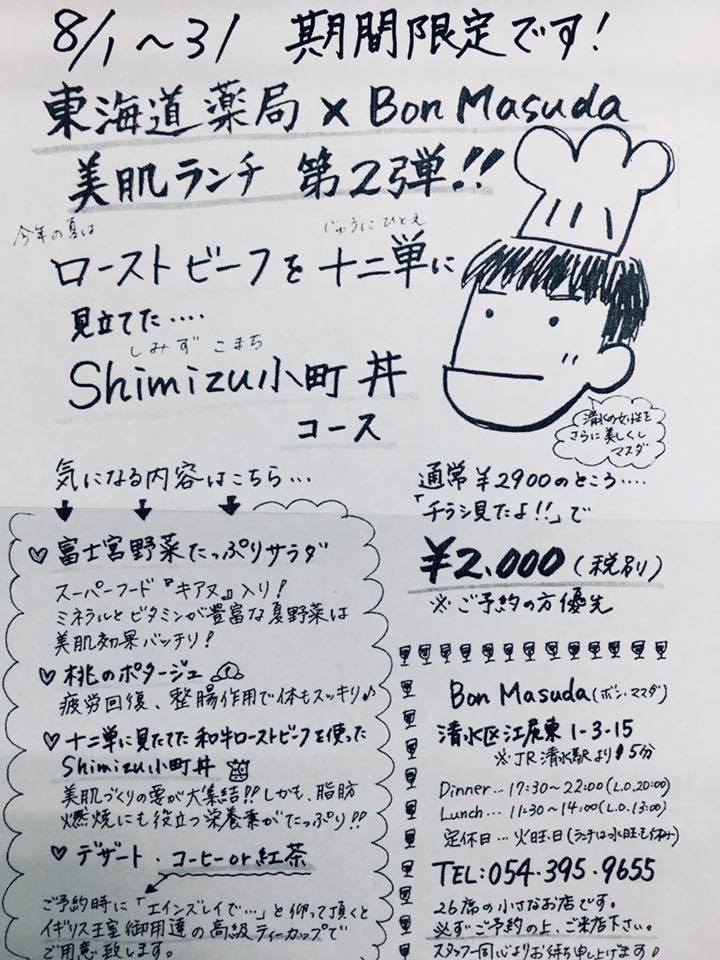 8/1〜31 期間限定です!
東海道薬局 × Bon Masuda
美肌ランチ 第2弾!!
今年の夏は
じゅうにひとえ
ローストビーフを十二単に
見立てた‥‥
しみず こまち
Shimizu小町丼
コース
清水の女性を
さらに美しくし
マスダ
気になる内容はこちら…
通常¥2900のところ‥‥
「チラシ見たよ!!」で
¥2,000(税別)
※ご予約の方優先
♡富士宮野菜たっぷりサラダ
スーパーフード『キアヌ』入り!
ミネラルとビタミンが豊富な夏野菜は
美肌効果バッチリ!
♡桃のポタージュ
疲労回復、整腸作用で体もスッキリ♪
♡十二単に見たてた和牛ローストビーフを使った
Shimizu小町丼
美肌づくりの要が大集結!!しかも、脂肪
燃焼にも役立つ栄養素がたっぷり!!
♡デザート・コーヒーor紅茶
ご予約時に「エインズレイで…」と仰って頂くと
イギリス王室御用達の高級ティーカップで
ご用意致します。
Bon Masuda(ボン・マスダ)
清水区江尻東1-3-15
※JR清水駅より5分
Dinner…17:30〜22:00(L.O.20:00)
Lunch…11:30〜14:00(L.O.13:00)
定休日…火曜日(ランチは水曜も休み)
TEL:054-395-9655
26席の小さなお店です。
必ずご予約の上、ご来店下さい。
スタッフ一同心よりお待ち申し上げます!